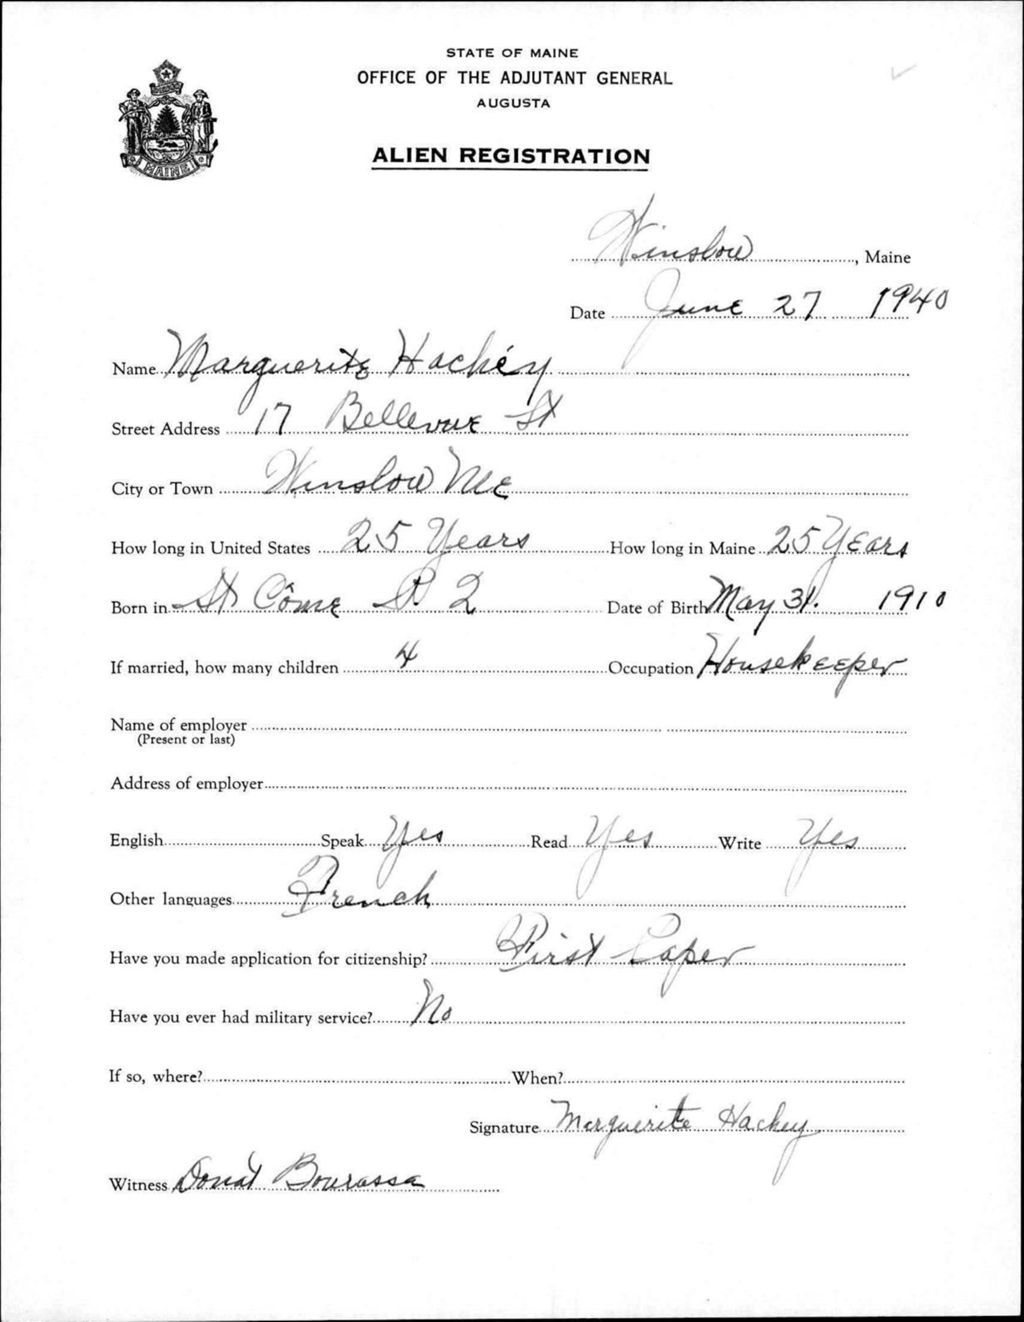 STATE OF MAINE
OFFICE OF THE ADJUTANT GENERAL
AUGUSTA
ALIEN REGISTRATION
MAINE
Winslow, Maine
Date June 27 1940
Name Marguerite Hachéy
Street Address 17 Bellevue St
City or Town Winslow Me
How long in United States 25 Years How long in Maine 25 Years
Born in St Côme P. Q Date of Birth May 31. 1910
If married, how many children 4 Occupation Housekeeper
Name of employer
(Present or last)
Address of employer
English Speak Yes Read Yes Write Yes
Other languages French
Have you made application for citizenship? First Paper
Have you ever had military service? No
If so, where? When?
Signature Marguerite Hachey
Witness Donat Bourassa